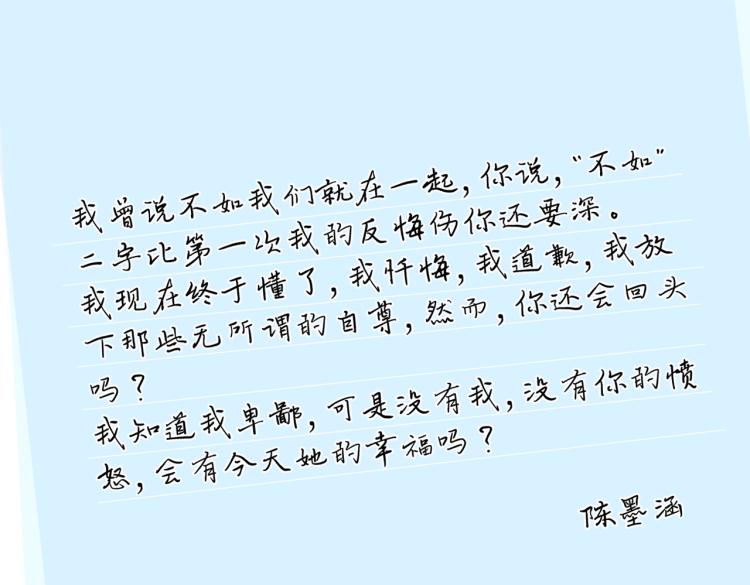 我曾说不如我们就在一起，你说，“不如”
二字比第一次我的反悔伤你还要深。
我现在终于懂了，我忏悔，我道歉，我放
下那些无所谓的自尊，然而，你还会回头
吗？
我知道我卑鄙，可是没有我，没有你的愤
怒，会有今天她的幸福吗？
陈墨涵